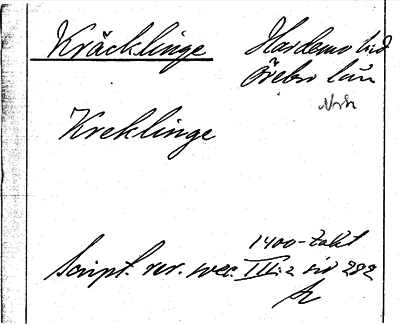 Kräcklinge Hardemo hd
Örebro län
Kreklinge
1400-talet
Script. rer. svec. III:2 sid 282